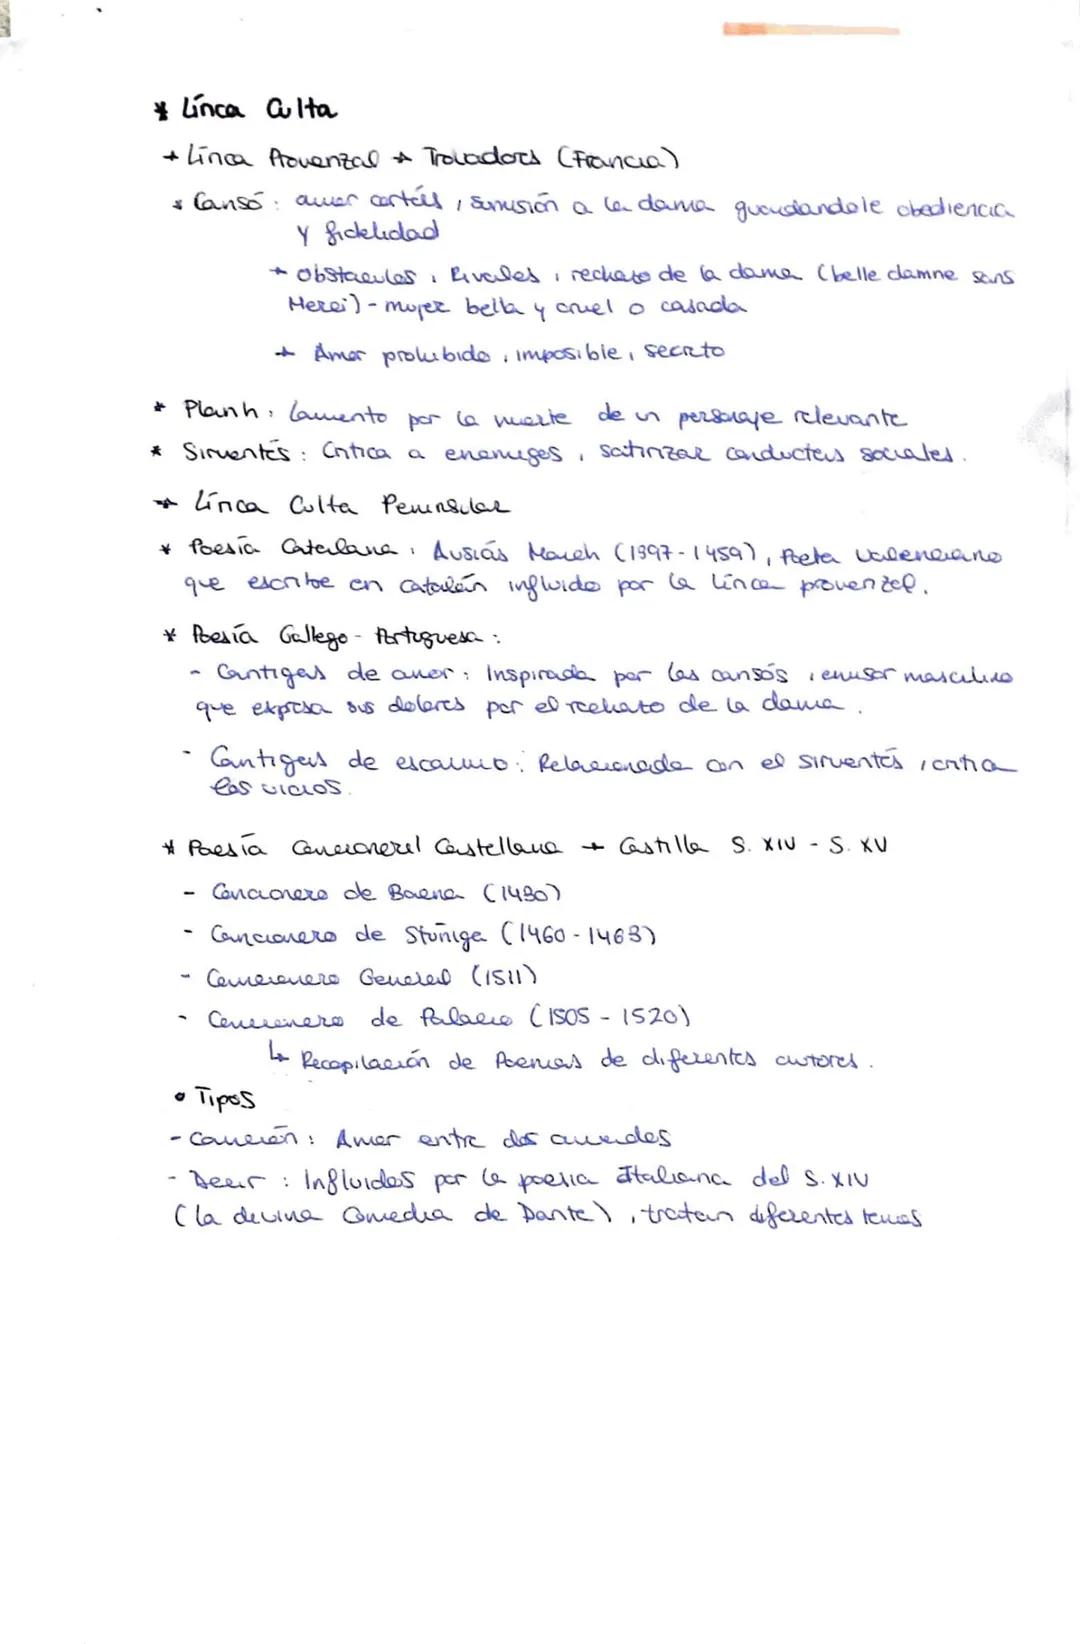 * Lírica Culta
→ Lírica Provenzal → Trovadores (Francia)
* Cansó: amor cortés, sumisión a la dama guardandole obediencia
y fidelidad
→ Obstaculos, Rivales, rechazo de la dama (belle damne sans
Merci) - mujer bella y cruel o casada
→ Amor prohibido, imposible, secreto
* Planh: Lamento por la muerte de un personaje relevante
* Sirventés: Critica a enemigos, satirizar conductas sociales.
→ Lírica Culta Peninsular
* Poesía Catalana: Ausiás March (1397-1459), Poeta valenciano
que escribe en catalán influido por la lírica provenzal.
* Poesía Gallego-Portuguesa:
- Cantigas de amor: Inspirada por las cansós, emisor masculino
que expresa sus dolores por el rechazo de la dama.
- Cantigas de escarnio: Relacionada con el sirventés, critica
los vicios.
* Poesía Cancioneril Castellana → Castilla S. XIV - S. XV
- Cancionero de Baena (1430)
- Cancionero de Stúñiga (1460-1463)
- Cancionero General (1511)
- Cancionero de Palacio (1505 - 1520)
↳ Recopilación de Poemas de diferentes autores.
• Tipos
- Canción: Amor entre dos amantes
- Decir: Influidos por la poesia Italiana del S. XIV
(la devina Comedia de Dante), tratan diferentes temas